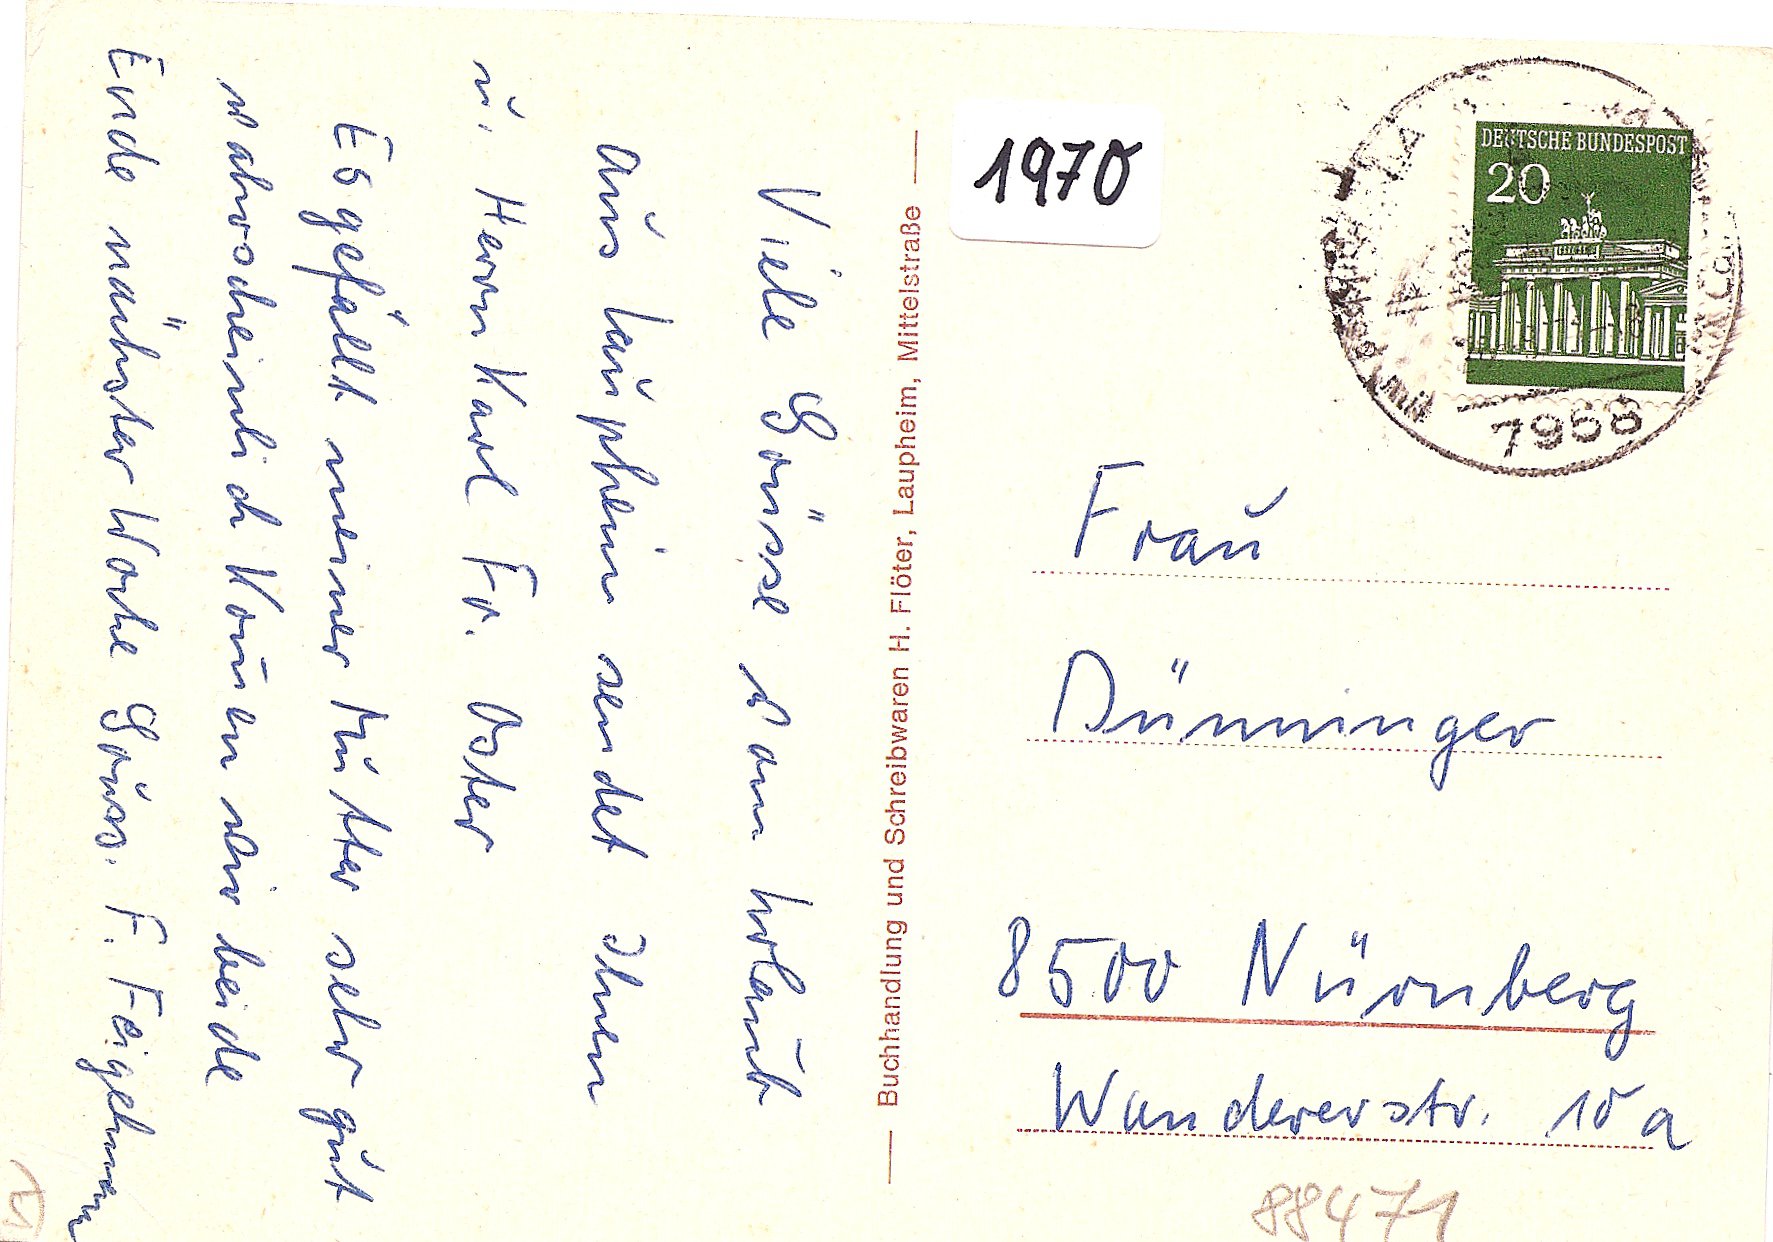 Viele Grüsse vom Urlaub
Aus Laupheim sendet Ihnen
u. Herrn Karl Fr. Oster
Es gefällt meiner Mutter sehr gut
wahrscheinlich kommen wir beide
Ende nächster Woche Grüss. F. Feigelmann
Buchhandlung und Schreibwaren H. Flöter, Laupheim, Mittelstraße
1970
DEUTSCHE BUNDESPOST
20
1968
Frau
Dünninger
8500 Nürnberg
Wandererstr. 10 a
88471